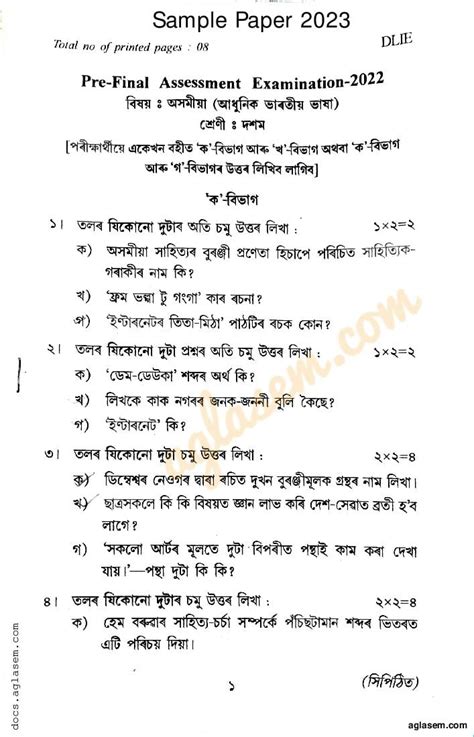 Sample Paper 2023
DLIE
Total no of printed pages : 08
Pre-Final Assessment Examination-2022
বিষয় ঃ অসমীয়া (আধুনিক ভাৰতীয় ভাষা)
শ্ৰেণী ঃ দশম
[পৰীক্ষাৰ্থীয়ে একেখন বহীত ‘ক’-বিভাগ আৰু ‘খ’-বিভাগ অথবা ‘ক’-বিভাগ
আৰু ‘গ’-বিভাগৰ উত্তৰ লিখিব লাগিব]
‘ক’-বিভাগ
১। তলৰ যিকোনো দুটাৰ অতি চমু উত্তৰ লিখা : ১×২=২
ক) অসমীয়া সাহিত্যৰ বুৰঞ্জী প্ৰণেতা হিচাপে পৰিচিত সাহিত্যিক-
গৰাকীৰ নাম কি?
খ) ‘ফ্ৰম ভল্গা টু গংগা’ কাৰ ৰচনা?
গ) ‘ইণ্টাৰনেটৰ তিতা-মিঠা’ পাঠটিৰ ৰচক কোন?
২। তলৰ যিকোনো দুটা প্ৰশ্নৰ অতি চমু উত্তৰ লিখা : ১×২=২
ক) ‘ডেম-ডেউকা’ শব্দৰ অৰ্থ কি?
খ) লিখকে কাক নগৰৰ জনক-জননী বুলি কৈছে?
গ) ‘ইণ্টাৰনেট’ কি?
৩। তলৰ যিকোনো দুটা চমু উত্তৰ লিখা : ২×২=৪
ক) ডিম্বেশ্বৰ নেওগৰ দ্বাৰা ৰচিত দুখন বুৰঞ্জীমূলক গ্ৰন্থৰ নাম লিখা।
খ) ছাত্ৰসকলে কি কি বিষয়ত জ্ঞান লাভ কৰি দেশ-সেৱাত ব্ৰতী হ’ব
লাগে?
গ) ‘সকলো আৰ্টৰ মূলতে দুটা বিপৰীত পন্থাই কাম কৰা দেখা
যায়।’—পন্থা দুটা কি কি?
৪। তলৰ যিকোনো দুটাৰ চমু উত্তৰ লিখা : ২×২=৪
ক) হেম বৰুৱাৰ সাহিত্য-চৰ্চা সম্পৰ্কে পঁচিছটামান শব্দৰ ভিতৰত
এটি পৰিচয় দিয়া।
১
(সিপিঠিত)
aglasem.com
docs.aglasem.com
aglasem.com